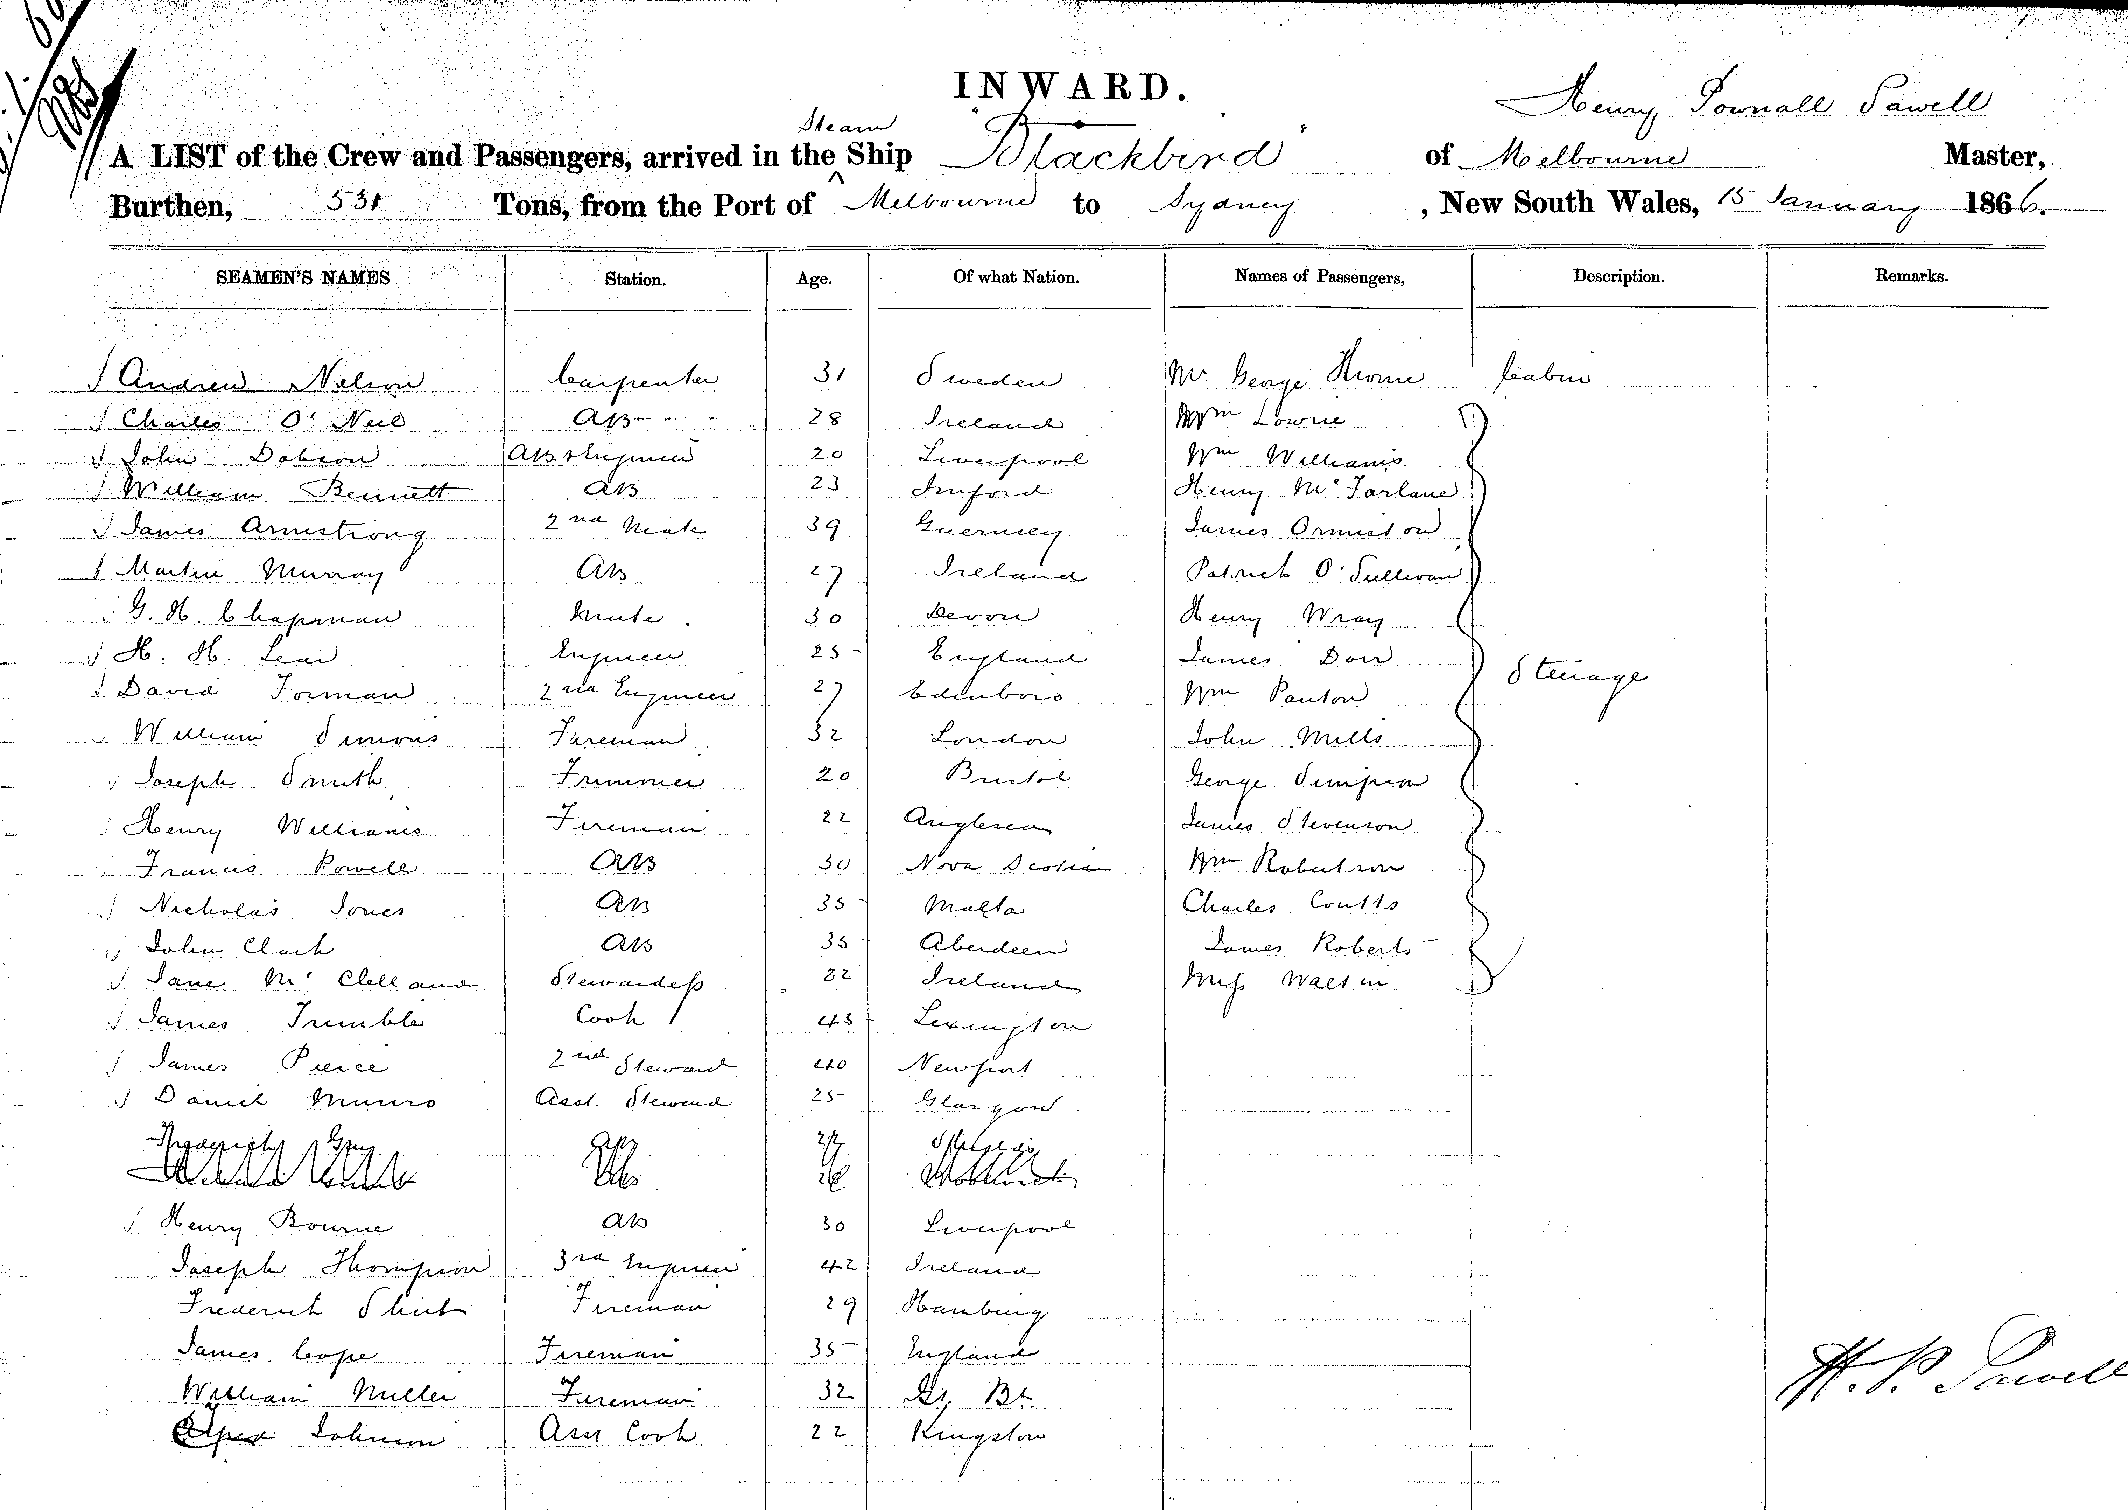 INWARD.
Henry Pownall Powell
Steam
A LIST of the Crew and Passengers, arrived in the Ship "Blackbird" of Melbourne Master,
Burthen, 531 Tons, from the Port of Melbourne to Sydney, New South Wales, 15 January 1866.
SEAMEN'S NAMES Station. Age. Of what Nation. Names of Passengers, Description. Remarks.
Andrew Nelson Carpenter 31 Sweden Mr George Cabin
Charles O'Neil AB 28 Ireland Wm Lowrie
John Dobson AB & Engineer 20 Liverpool Wm Williams
William Bennett AB 23 Henry McFarlane
James Armstrong 2nd Mate 39 Guernsey James Ormiston
Martin Murray AB 27 Ireland Patrick O'Sullivan
G. H. Chapman Mate 30 Devon Henry Wray
H. H. Lear Engineer 25 England James Dorr
Steerage
David Forman 2nd Engineer 27 Edinboro Wm Panton
William Simons Fireman 32 London John Mills
Joseph Smith Trimmer 20 Bristol George Simpson
Henry Williams Fireman 22 Anglesea James Stevenson
Francis Powell AB 30 Nova Scotia Wm Robertson
Nicholas Jones AB 35 Malta Charles Coutts
John Clark AB 35 Aberdeen James Roberts
Jane McClelland Stewardess 32 Ireland Miss Walsh
James Trimble Cook 43 Lexington
James Pierce 2nd Steward 40 Newport
Daniel Munro Asst. Steward 25 Glasgow
Frederick Gray AB 22
Henry Bourne AB 30 Liverpool
Joseph Thompson 3rd Engineer 42 Ireland
Frederick Fireman 29 Hamburg
James Cope Fireman 35 England
William Miller Fireman 32 Gt Bt
Johnson Asst Cook 22 Kingston
H. P. Powell